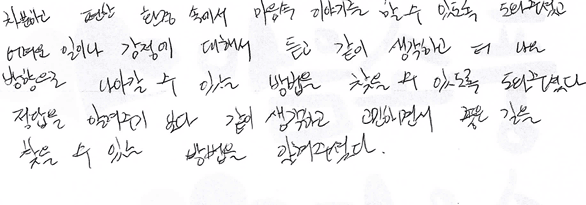 차분하고 편한 환경 속에서 마음속 이야기를 할 수 있도록 도와주셨고
어려운 일이나 감정에 대해서 듣고 같이 생각하고 더 나은
방향으로 나아갈 수 있는 방법을 찾을 수 있도록 도와주셨다
정답을 알려주기 보다 같이 생각하고 고민하면서 좋은 길을
찾을 수 있는 방법을 알려주셨다.